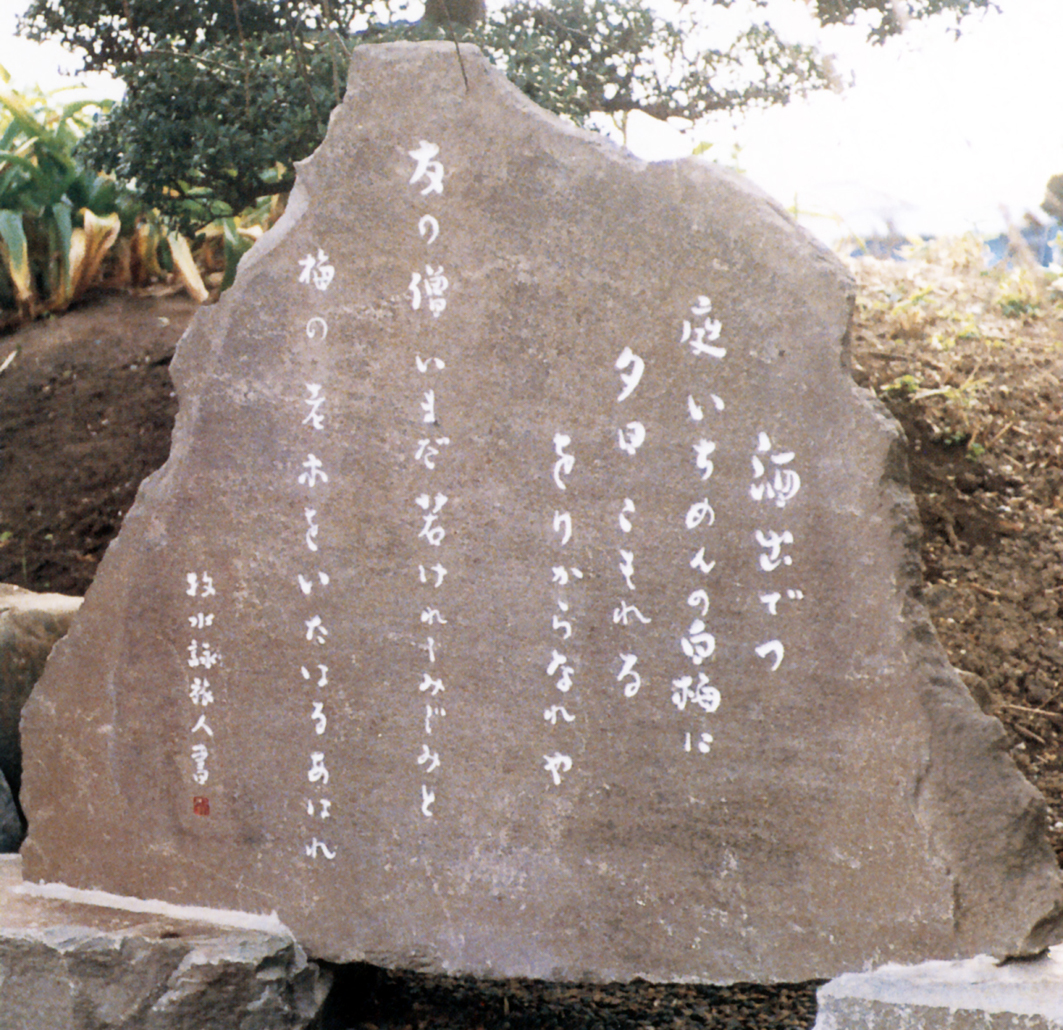 酒出でつ
庭いちめんの白梅に
夕日こもれる
をりからなれや
友の僧いまだ若けれしみじみと
梅の老木をいたはるあはれ
牧水詠旅人書